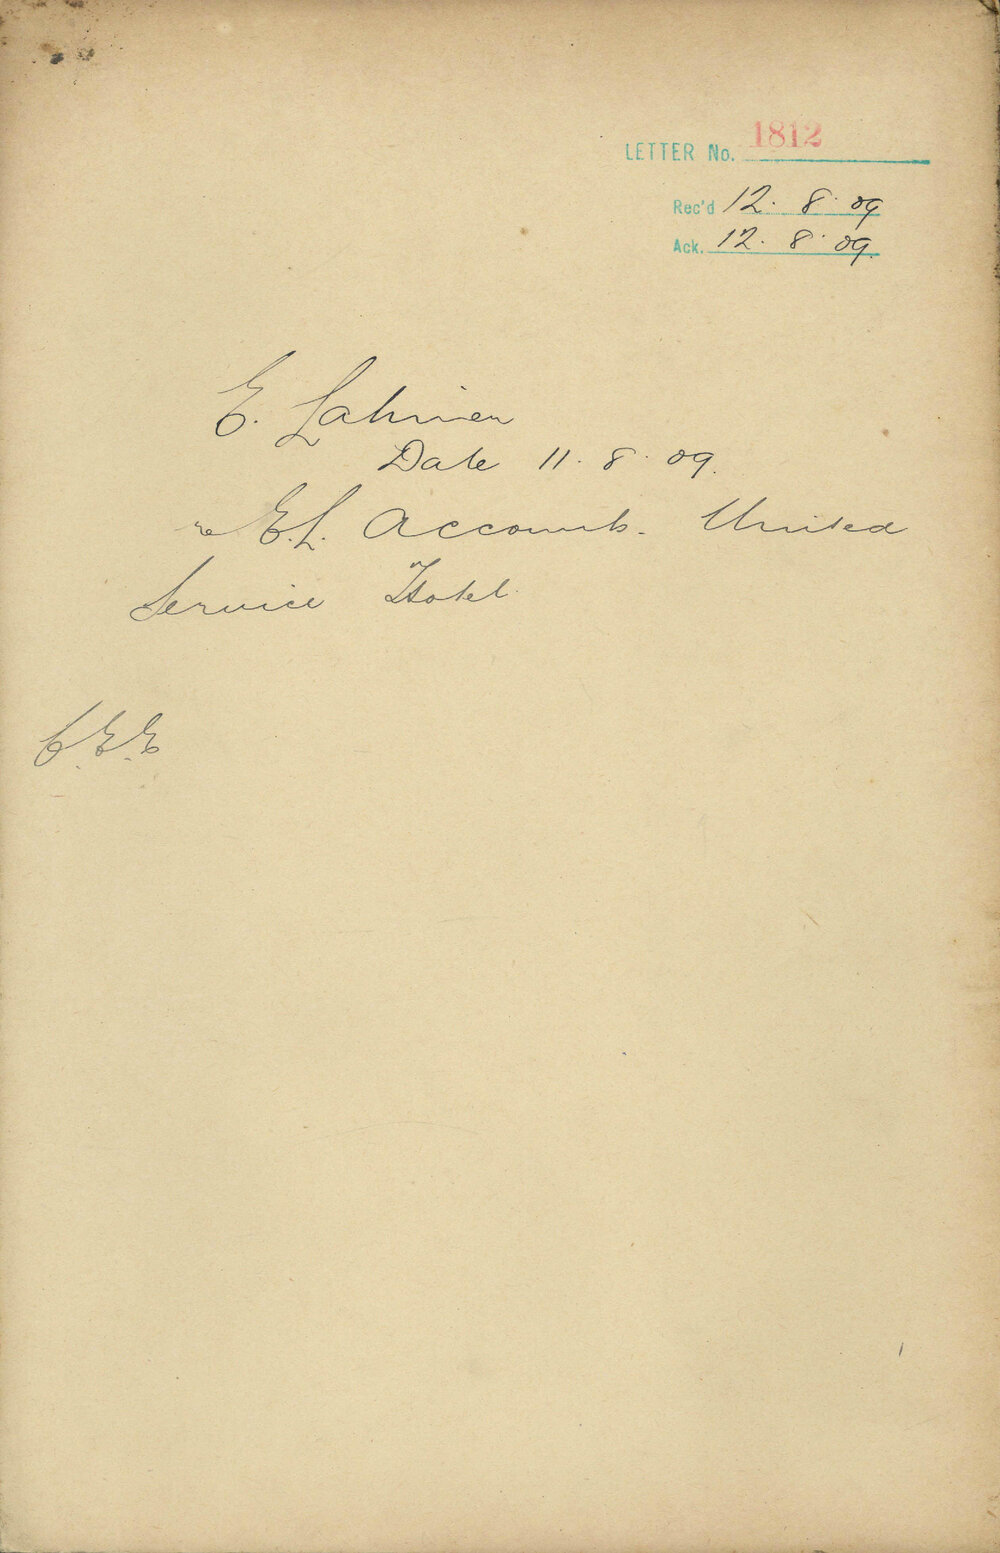 LETTER No. 1812
Rec'd 12. 8. 09
Ack. 12. 8. 09.
E.
Date 11. 8. 09.
re E.L. Accounts. United
Service Hotel.